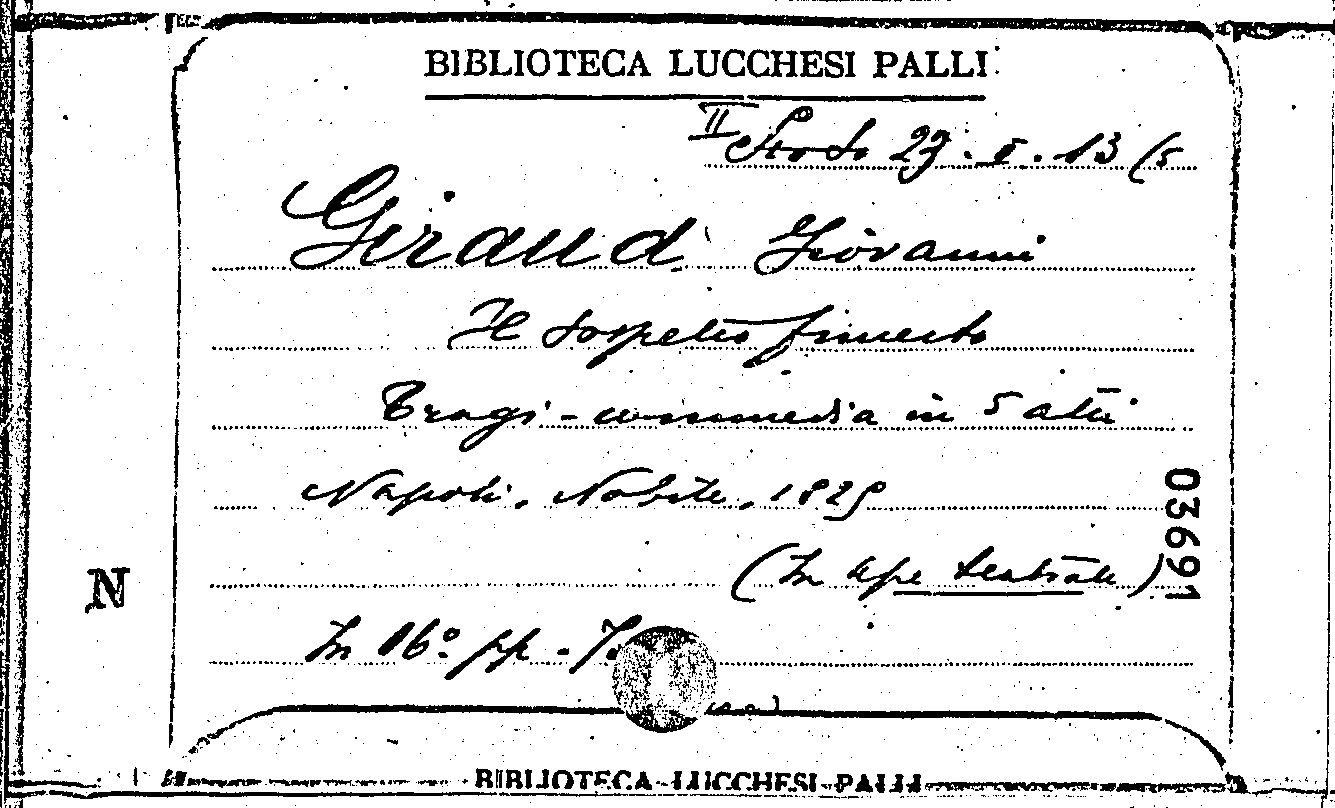 BIBLIOTECA LUCCHESI PALLI
II 23. I. 13 (5
Giraud Giovanni
Il Sospetto funesto
Tragi-commedia in 5 atti
Napoli, Nobile, 1829
(In Ape teatrale)
In 16º pp. 7
03691
N
BIBLIOTECA LUCCHESI PALLI